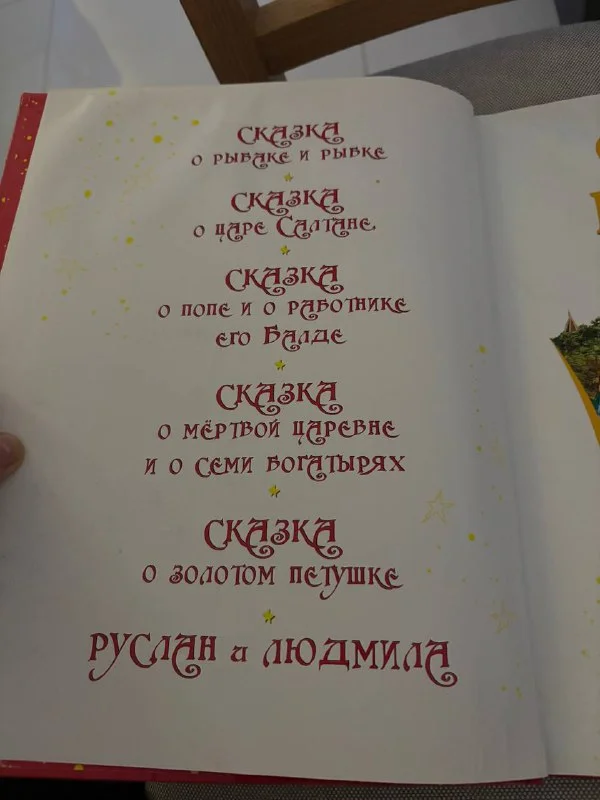 Сказка
о рыбаке и рыбке
Сказка
о царе Салтане,
Сказка
о попе и о работнике
его Балде
Сказка
о мёртвой царевне
и о семи богатырях
Сказка
о золотом петушке
Руслан и Людмила